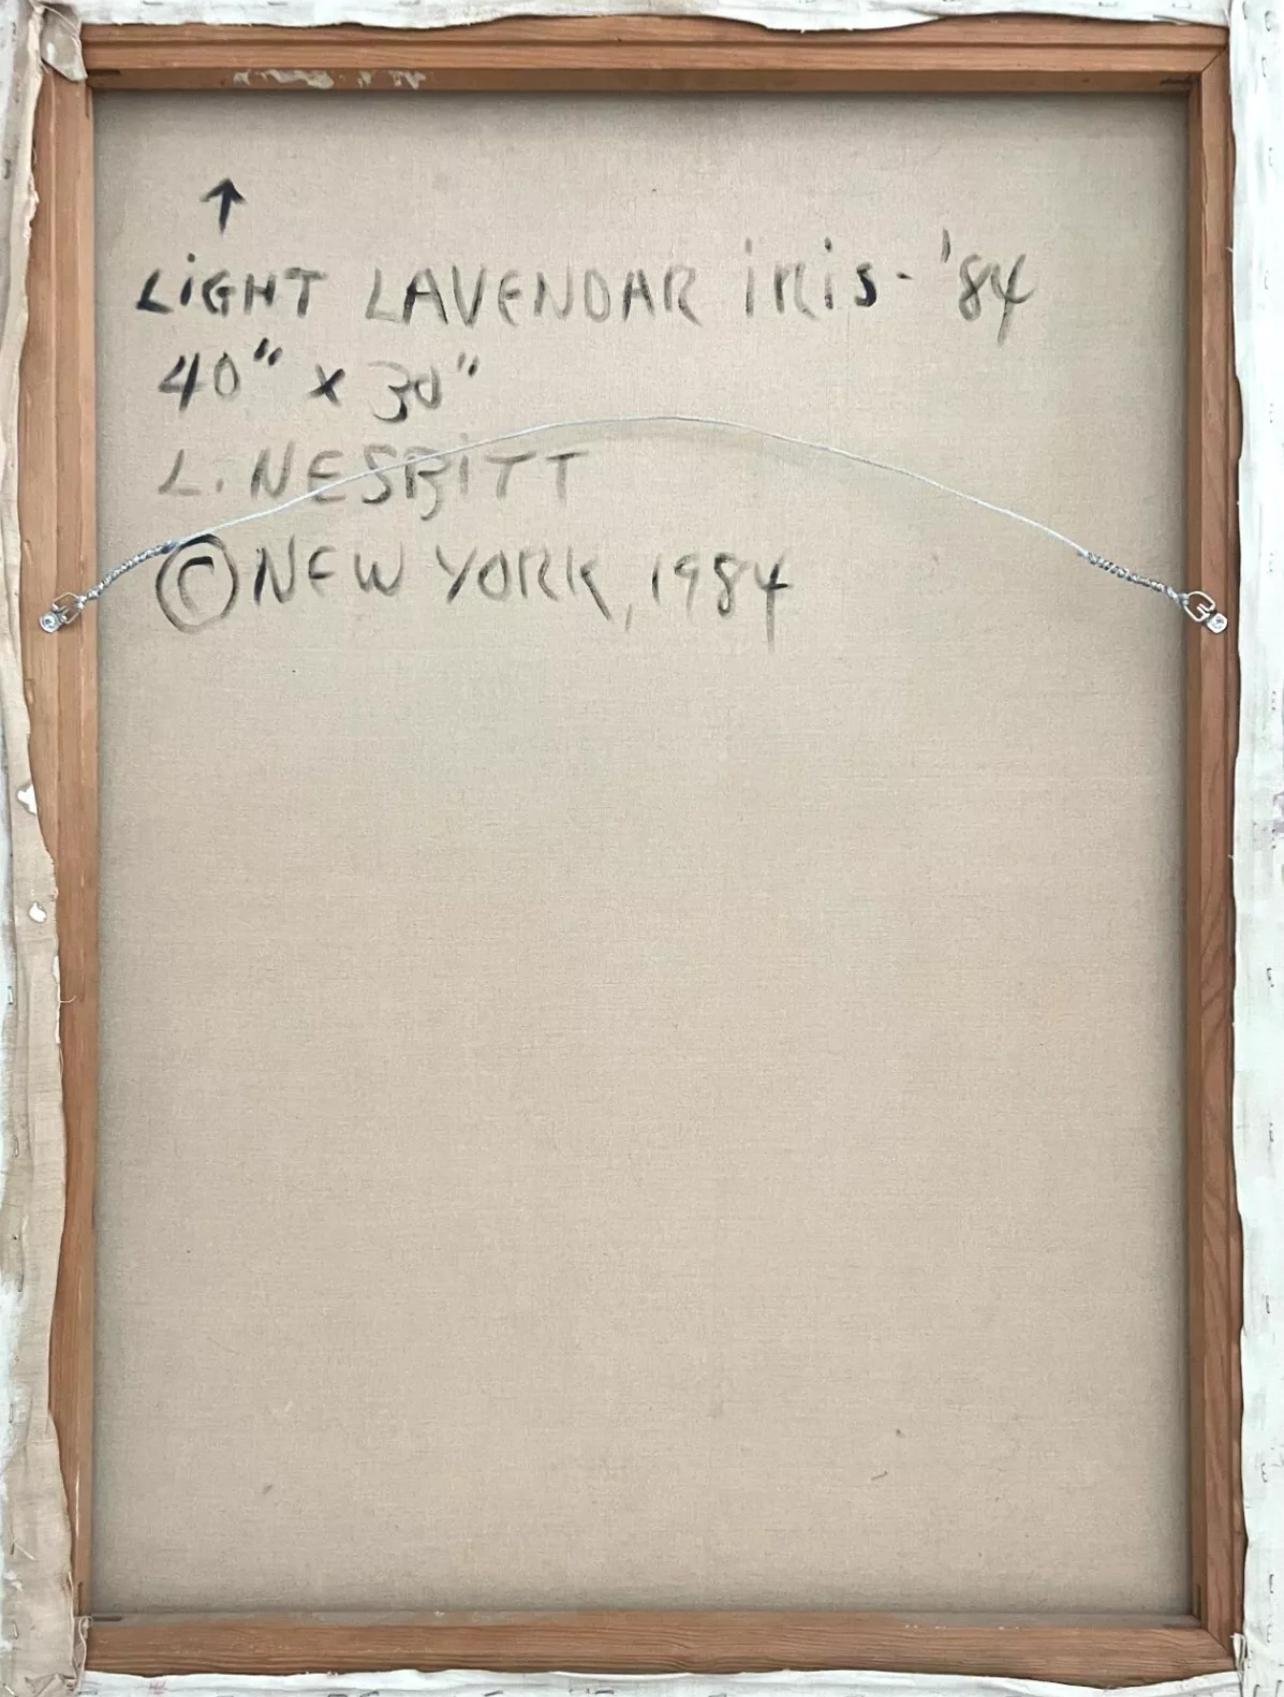 ↑
LiGHT LAVENDAR iRiS - '84
40" x 30"
L. NESBiTT
© NEW YORK, 1984